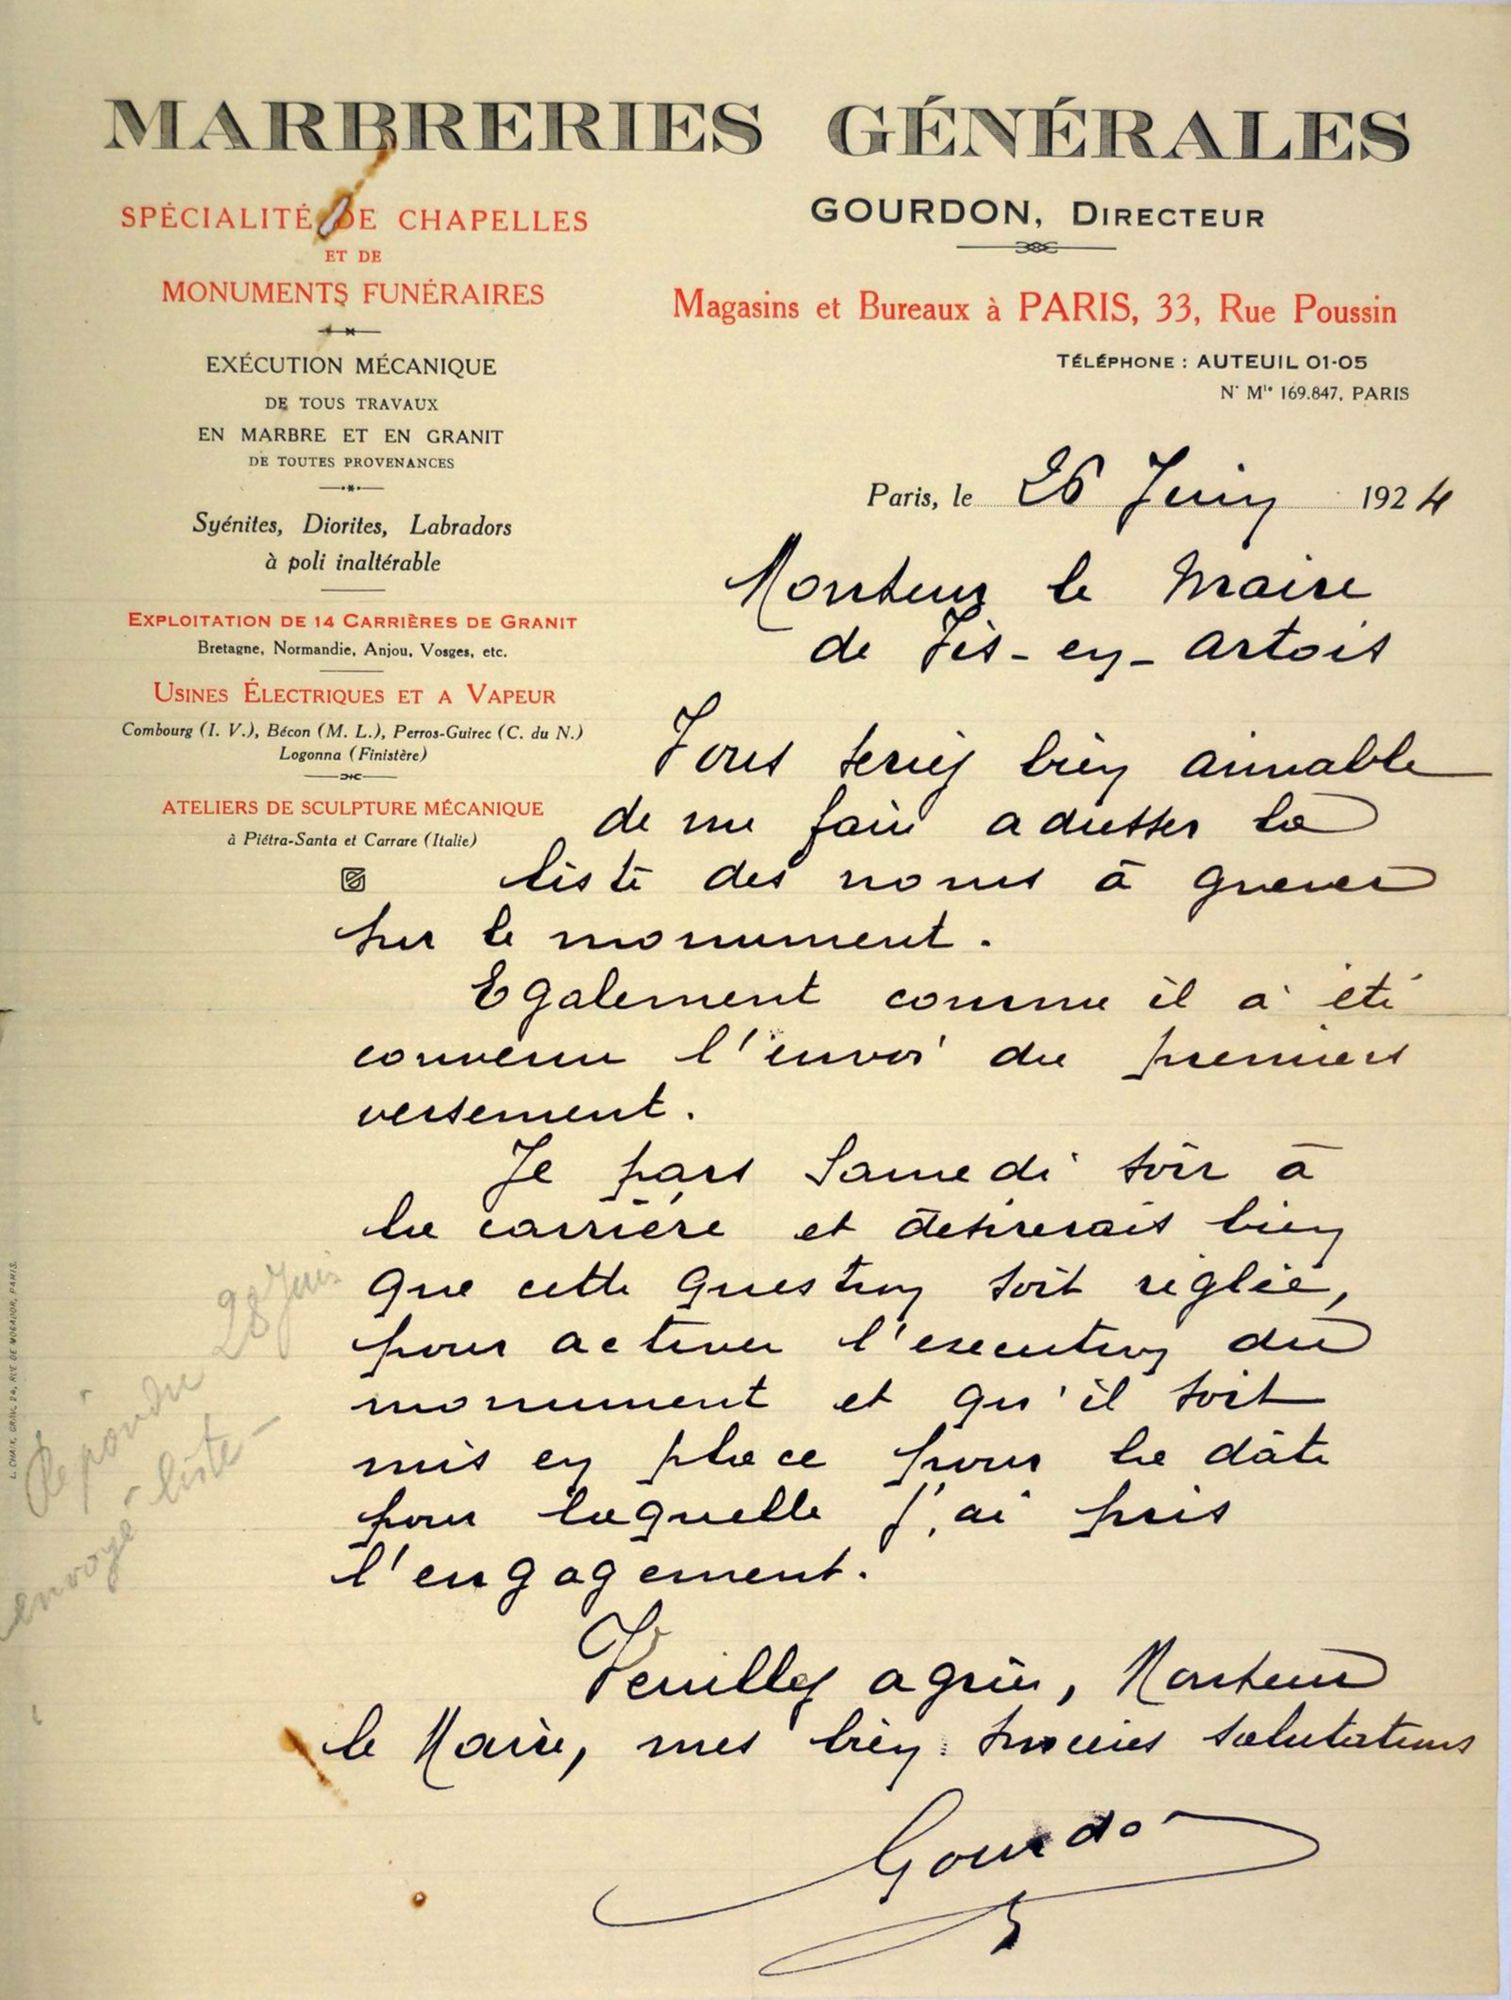 MARBRERIES GÉNÉRALES
SPÉCIALITÉ DE CHAPELLES
ET DE
MONUMENTS FUNÉRAIRES
EXÉCUTION MÉCANIQUE
DE TOUS TRAVAUX
EN MARBRE ET EN GRANIT
DE TOUTES PROVENANCES
Syénites, Diorites, Labradors
à poli inaltérable
EXPLOITATION DE 14 CARRIÈRES DE GRANIT
Bretagne, Normandie, Anjou, Vosges, etc.
USINES ÉLECTRIQUES ET A VAPEUR
Combourg (I. V.), Bécon (M. L.), Perros-Guirec (C. du N.)
Logonna (Finistère)
ATELIERS DE SCULPTURE MÉCANIQUE
à Piétra-Santa et Carrare (Italie)
GOURDON, DIRECTEUR
Magasins et Bureaux à PARIS, 33, Rue Poussin
TÉLÉPHONE : AUTEUIL 01-05
N° Mle 169.847, PARIS
Paris, le 26 Juin 1924
Monsieur le Maire
de Vis-en-Artois
Vous seriez bien aimable
de me faire adresser la
liste des noms à graver
sur le monument.
Egalement comme il a été
convenu l'envoi du premier
versement.
Je pars Samedi soir à
la carrière et désirerais bien
que cette question soit réglée,
pour activer l'execution du
monument et qu'il soit
mis en place pour la dâte
pour laquelle j'ai pris
l'engagement.
Veuillez agréer, Monsieur
le Maire, mes bien sincères salutations
Gourdon
Répondu 28 Juin
envoyé liste
L. CHAIX, GRAV. 24, RUE DE MOGADOR, PARIS.